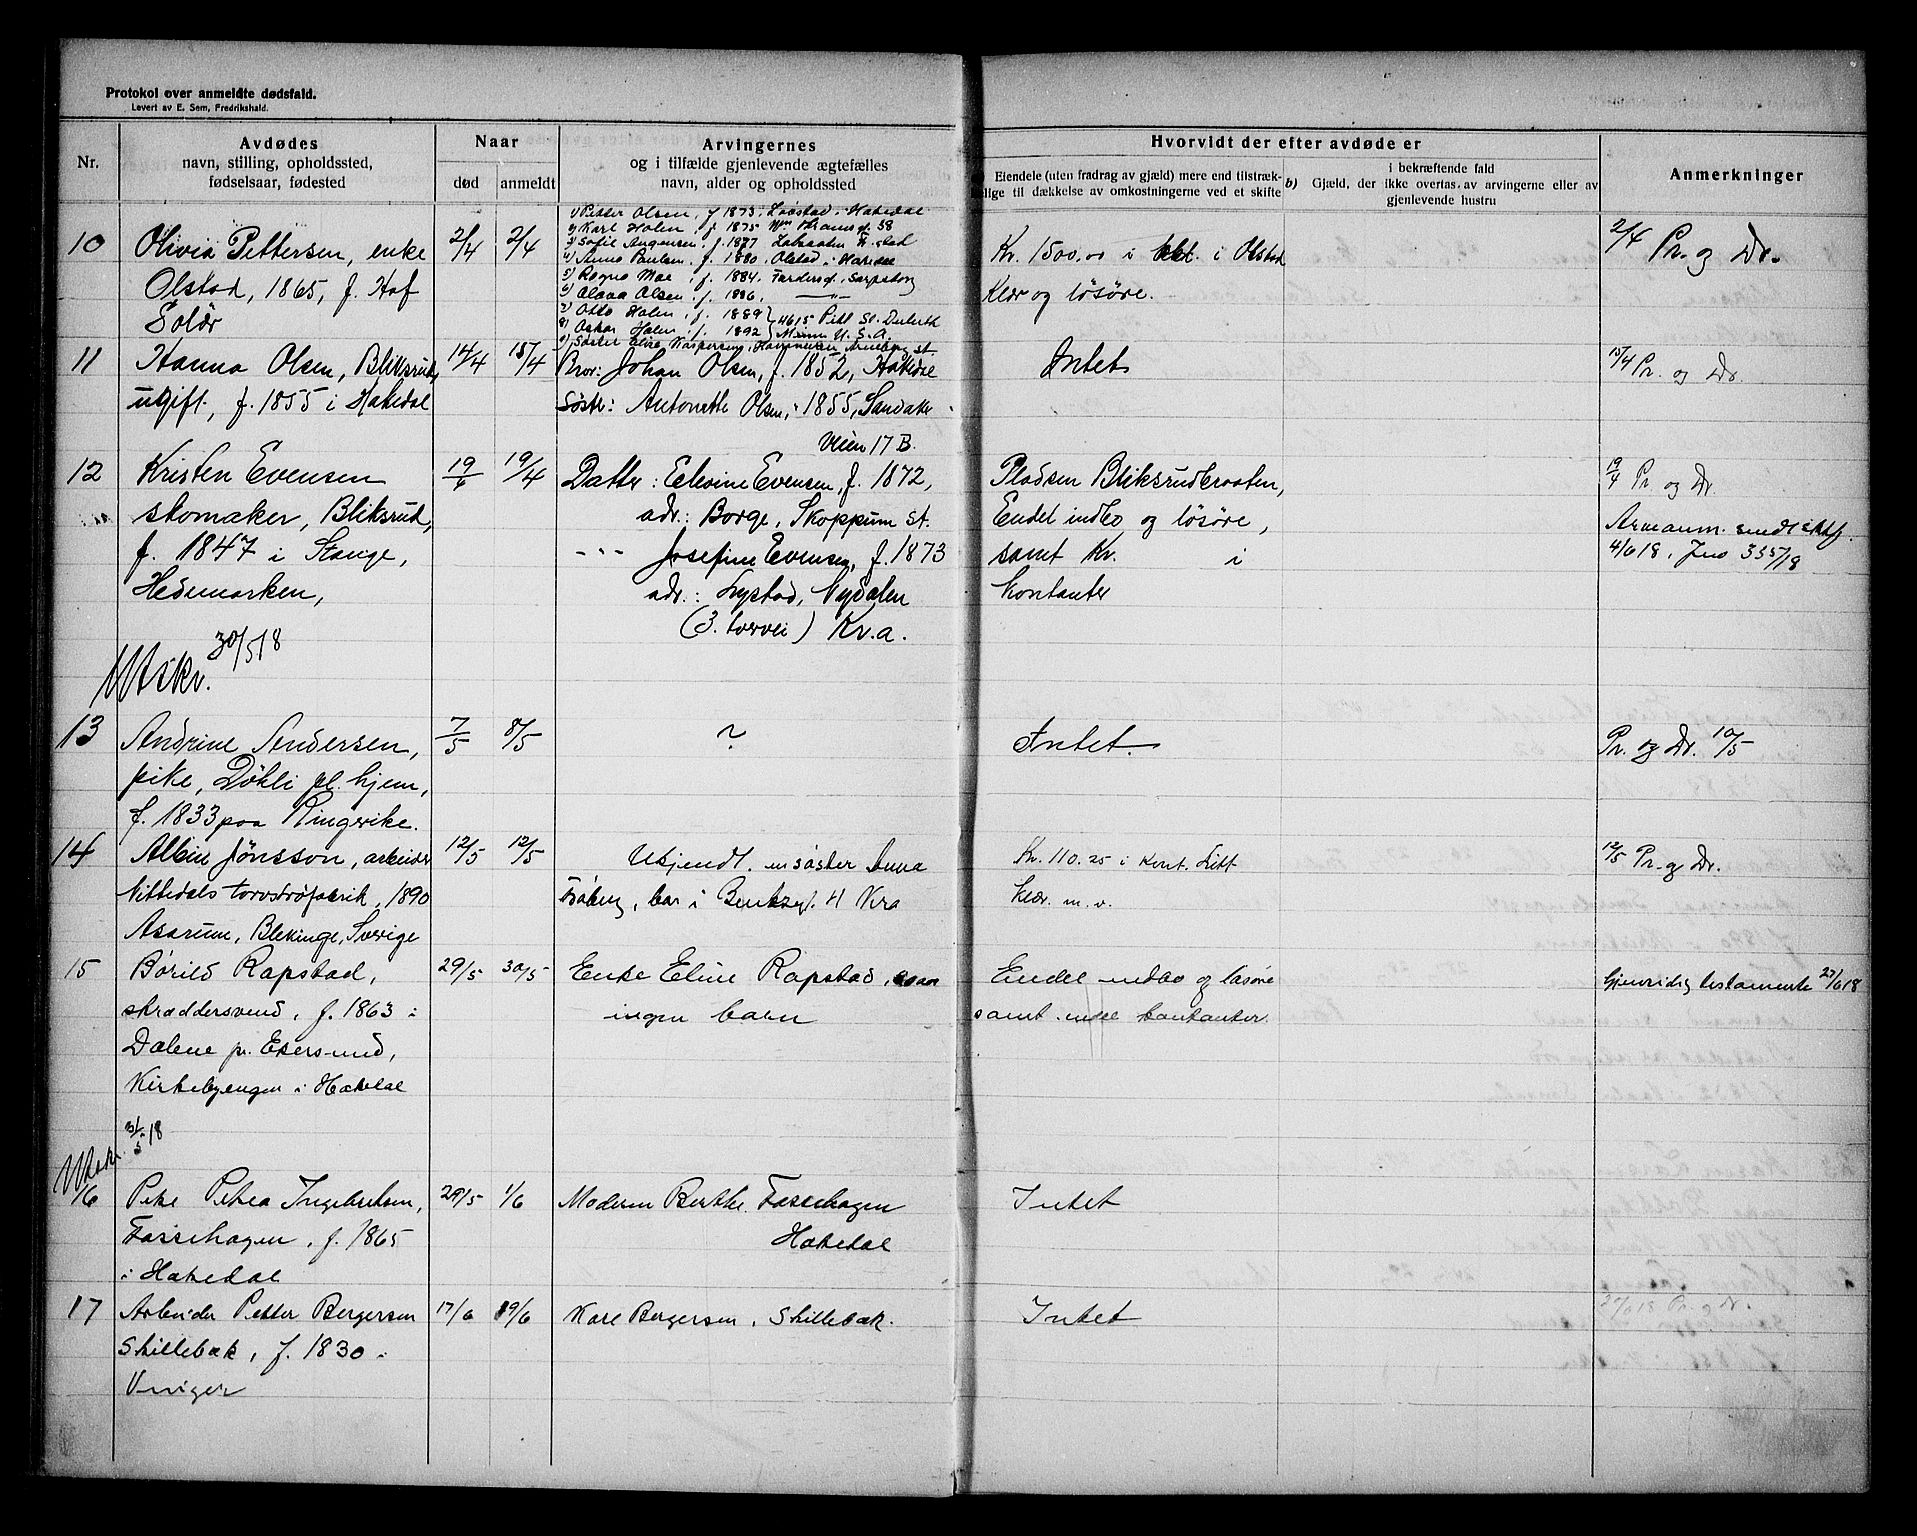 Protokol over anmeldte dødsfald.
Levert av E. Sem, Fredrikshald.
Nr.
Avdødes
navn, stilling, opholdssted,
fødselsaar, fødested
Naar
død
anmeldt
Arvingernes
og i tilfælde gjenlevende ægtefælles
navn, alder og opholdssted
Hvorvidt der efter avdøde er
Eiendele (uten fradrag av gjæld) mere end tilstræk-
lige til dækkelse av omkostningerne ved et skifte
b) Gjæld, der
i bekræftende fald
ikke overtas. av arvingerne eller av
gjenlevende hustru
Anmerkninger
10
Olivia Pettersen, enke
Olstad, 1865, f. Hof
Solør
2/4
2/4
1) Petter Olsen, f 1873, Hakedal
2) Karl Holen, f. 1875 58
3) Sofie f. 1877
4) Anna Paulsen, f. 1880, Olstad i Hakedal
5) Ragna Moe, f. 1884, Sarpsborg
6) Olava Olsen, f. 1886, —"—
7) Otto Holen, f. 1889 } 4615 Duluth
8) Oskar Holen, f. 1892 } Minn U.S.A.
9) Søster
Kr. 1500.00 i i Olstad
Klær og løsøre.
2/4 Pr. og Dr.
11
Hanna Olsen, Bliksrud,
ugift, f. 1855 i Hakedal
14/4
15/4
Bror: Johan Olsen, f. 1852, Hakedal
Søster: Antonette Olsen, " 1855, Sandaker
Veien 17 B.
Intet
15/4 Pr. og Dr.
12
Kristen Evensen
skomaker, Bliksrud,
f. 1847 i Stange,
Hedemarken,
19/4
19/4
Datter: Elevine Evensen, f. 1872,
adr.: Borge, Skoppum st.
" " " Josefine Evensen, f. 1873
adr.: Frystad, Nydalen
(3. tverrvei) Kr.a.
Pladsen Bliksrudbraaten,
Endel indbo og løsøre,
samt Kr. i
kontanter
19/4 Pr. og Dr.
Arveanm. sendt
4/6 18, Jno 335/18
Utskr. 30/5 18
13
Andrine Andersen,
pike, Døhli pl. hjem,
f. 1833 paa Ringerike.
7/5
8/5
?
Intet.
Pr. og Dr. 10/5
14
Albin Jönsson, arbeider
Nittedals torvstrøfabrik, 1890
Asarum, Blekinge, Sverige
12/5
12/5
Ukjendt. en søster Anna
bor i 4 Kra
Kr. 110.25 i kont. Litt
klær m. v.
12/5 Pr. og Dr.
15
Børild Rapstad,
skræddersvend, f. 1863 i
Dalene pr. Ekersund,
Kirkebyengen i Hakedal
29/5
30/5
Enke Eline Rapstad,
ingen barn
Endel indbo og løsøre
samt endel kontanter.
Gjensidig testamente 27/6 18
Utskr. 31/5 18
16
Pike Petra Ingebretsen,
Fossehagen, f. 1865
i Hakedal
29/5
1/6
Moderen Berthe Fossehagen
Hakedal
Intet
17
Arbeider Petter Bergersen
Skillebæk, f. 1830 i
17/6
19/6
Kare Bergersen, Skillebæk.
Intet
27/6 18 Pr. og Dr.